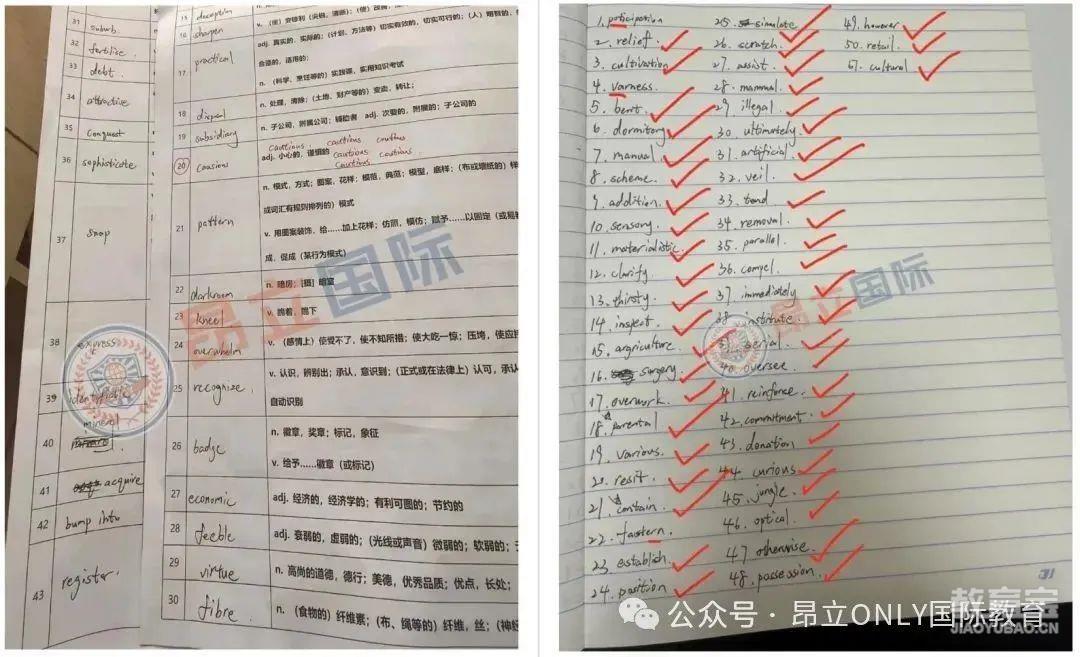 31 suburb.
32 fertilise.
33 debt.
34 attractive
35 conquest
36 sophisticate
37 snap
38 express
39 identifiable
40 mineral
41 acquire
42 bump into
43 register.
15 deception
16 sharpen
17 practical
adj. 真实的,实际的;(计划、方法等) 切实有效的,切实可行的;(人)
合适的,适用的;
n. (科学、烹饪等的) 实践课,实用知识考试
18 disposal
n. 处理,清除;(土地、财产等的) 变卖,转让;
19 subsidiary
n. 子公司,附属公司;辅助者 adj. 次要的,附属的;子公司的
20 causious
cautious cautious cautious
adj. 小心的,谨慎的 cautious cautious.
cautious.
21 pattern
n. 模式,方式;图案,花样;模范,典范;模型,底样;(布或墙纸的) 样
或词汇有规则排列的) 模式
v. 用图案装饰,给……加上花样;仿照,模仿;赋予……以固定 (或易
成,促成 (某行为模式)
22 darkroom
n. 暗房;[摄] 暗室
23 kneel
v. 跪着,跪下
24 overwhelm
v. (感情上) 使受不了,使不知所措;使大吃一惊;压垮,使应接
25 recognize
v. 认识,辨别出;承认,意识到;(正式或在法律上) 认可,承认
自动识别
26 badge
n. 徽章,奖章;标记,象征
v. 给予……徽章 (或标记)
27 economic
adj. 经济的,经济学的;有利可图的;节约的
28 feeble
adj. 衰弱的,虚弱的;(光线或声音) 微弱的;软弱的;
29 virtue
n. 高尚的道德,德行;美德,优秀品质;优点,长处;
30 fibre
n. (食物的) 纤维素;(布、绳等的) 纤维,丝;(神经
昂立国际
1. poticipation
2. relief.
3. cultivation
4. varness.
5. berit.
6. dormitory
7. manual
8. scheme.
9. addition.
10. sensory.
11. materialistic
12. clarify
13. thirsty.
14. inspect
15. argriculture.
16. surgery.
17. overwork.
18. parental
19. various.
20. resit.
21. contain
22. fastern.
23. establish
24. position
25. simulate
26. scratch
27. assist.
28. mammal.
29. illegal
30. ultimately.
31. artificial
32. veil.
33. tend
34. removal
35. parallel.
36. compel
37. immediately
38. institute.
39. serial
40. oversee
41. reinforce
42. commitment
43. donation
44. curious
45. jungle
46. optical
47. otherwise
48. possession
49. however
50. retail.
51. cultural
昂立国际
31
公众号 · 昂立ONLY国际教育
教育宝
JIAOYUBAO.CN